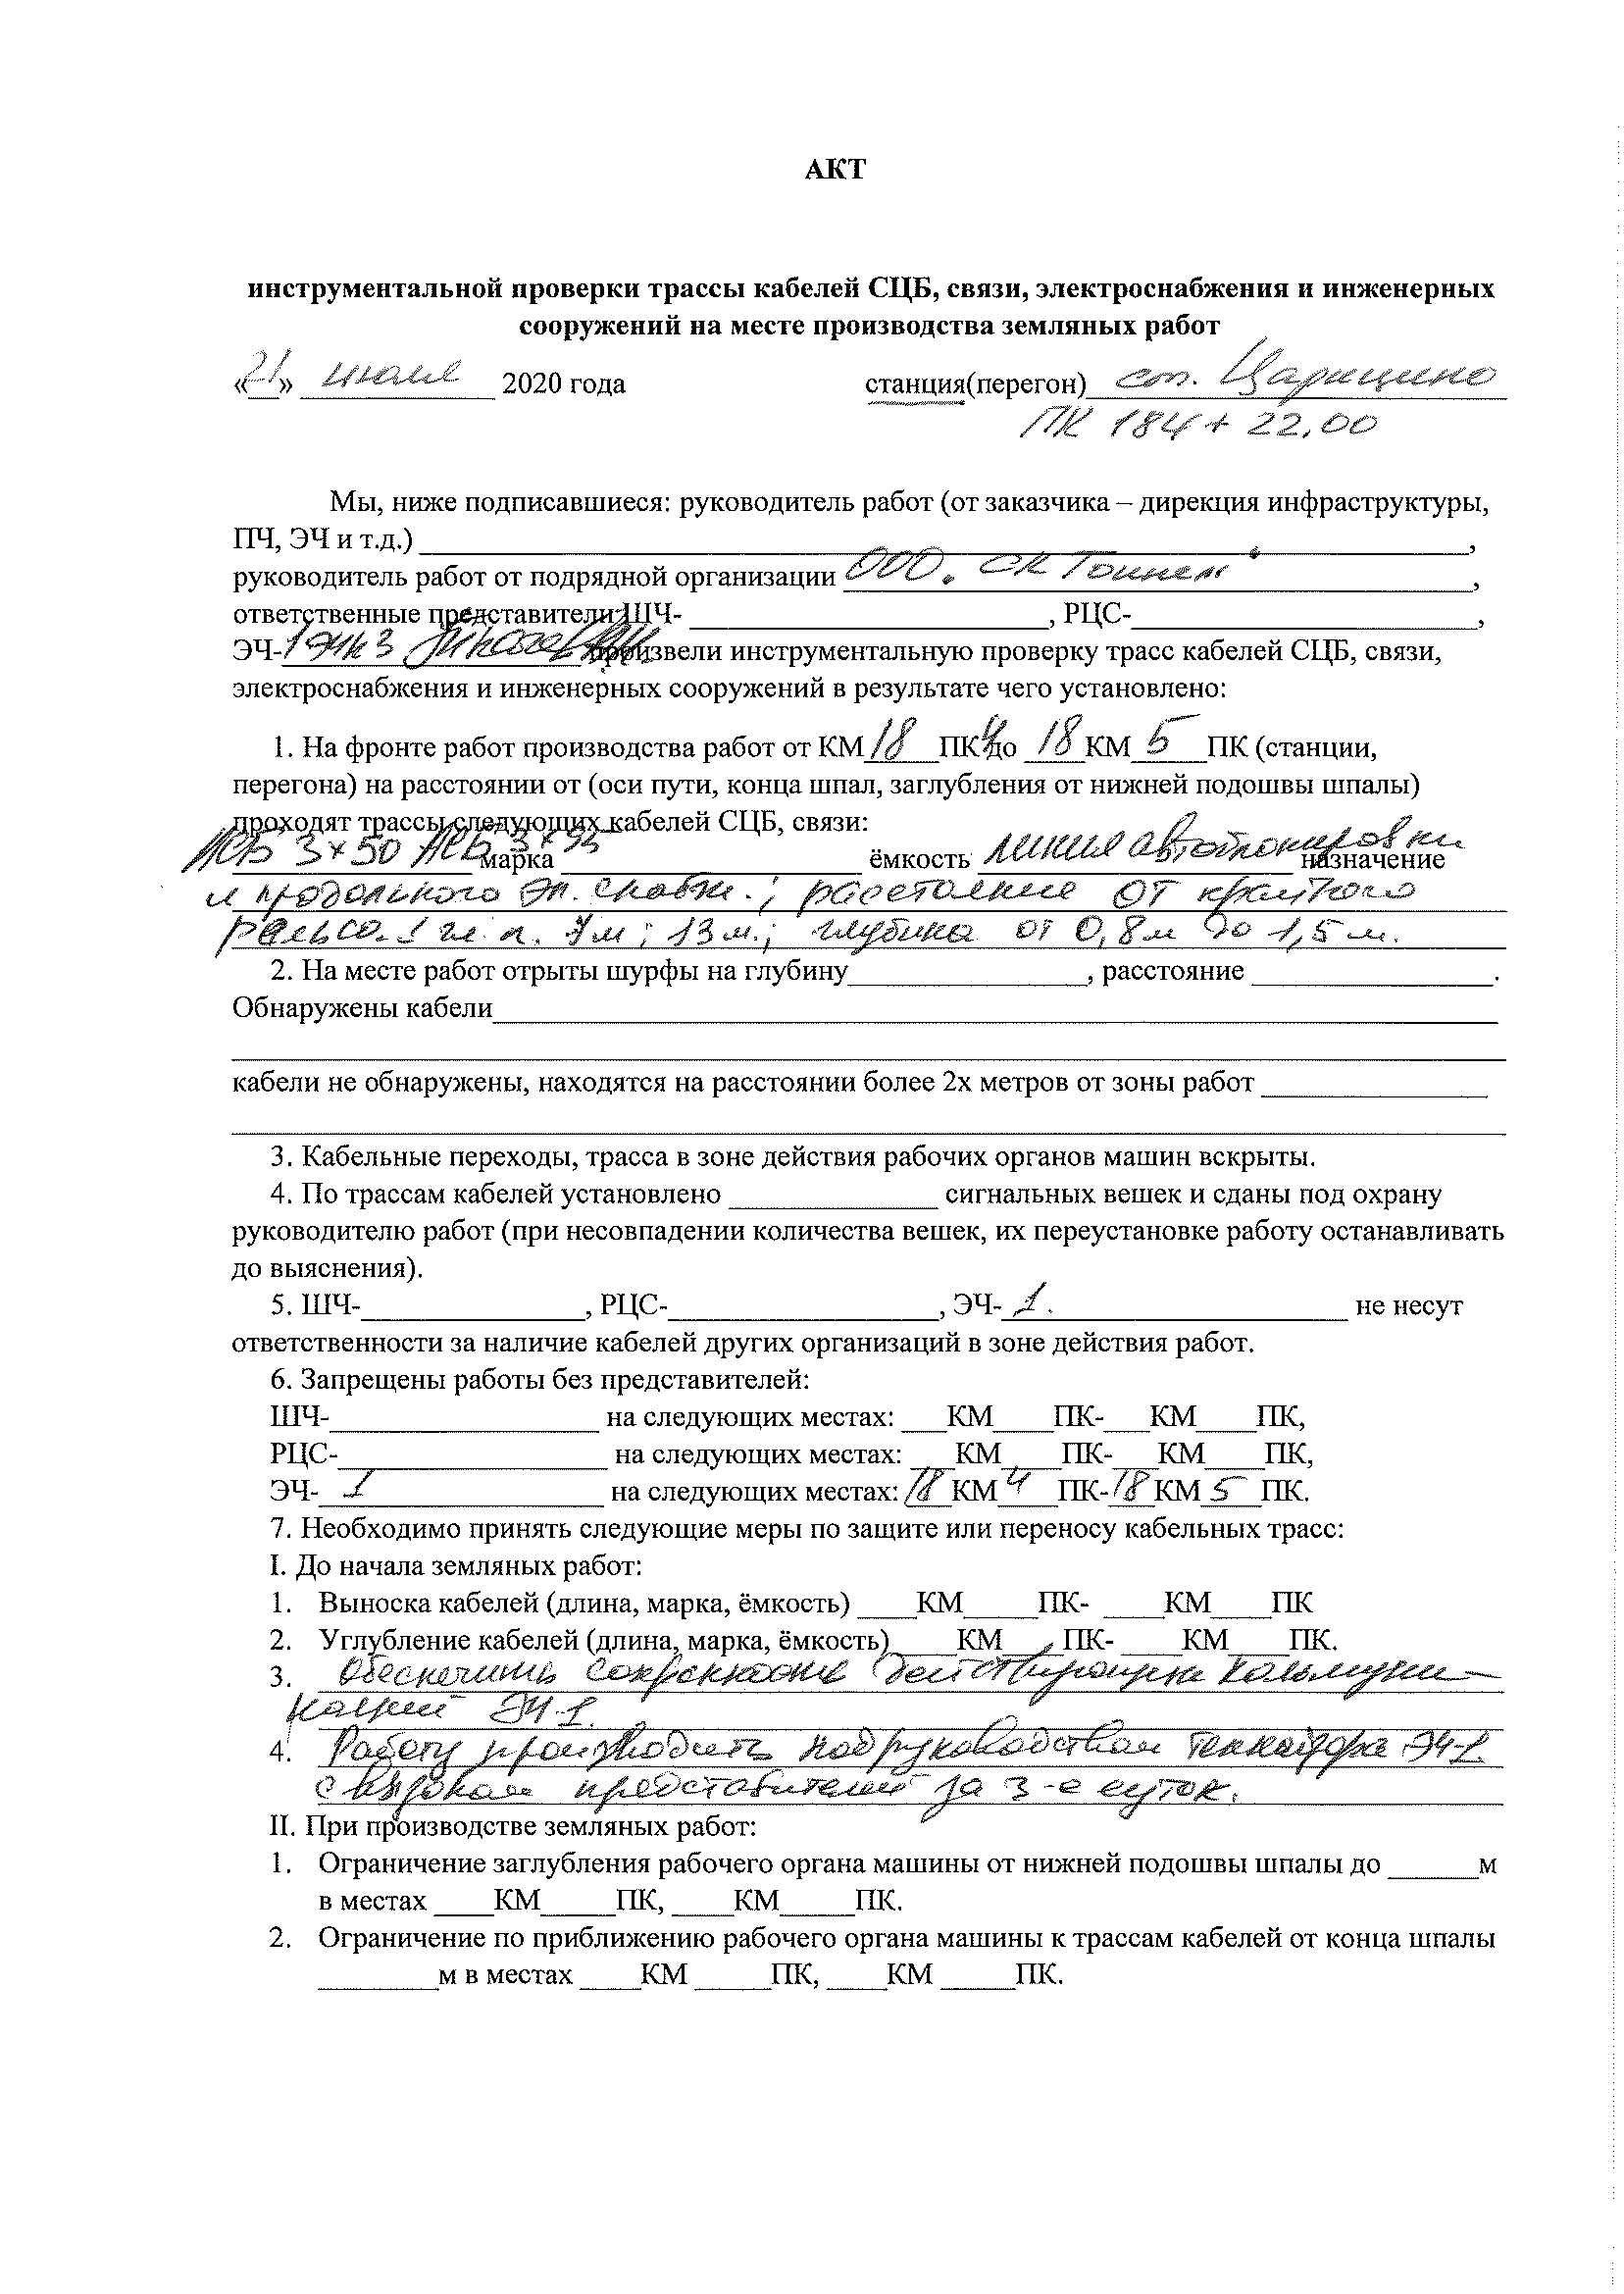 АКТ
инструментальной проверки трассы кабелей СЦБ, связи, электроснабжения и инженерных
сооружений на месте производства земляных работ
«21» июля 2020 года станция(перегон) ст. Царицыно
ПК 184+22,00
Мы, ниже подписавшиеся: руководитель работ (от заказчика – дирекция инфраструктуры,
ПЧ, ЭЧ и т.д.) ____,
руководитель работ от подрядной организации ООО "СК Тоннель",
ответственные представители: ШЧ- ____, РЦС-____,
ЭЧ-1 произвели инструментальную проверку трасс кабелей СЦБ, связи,
электроснабжения и инженерных сооружений в результате чего установлено:
1. На фронте работ производства работ от КМ 18 ПК 4 до 18 КМ 5 ПК (станции,
перегона) на расстоянии от (оси пути, конца шпал, заглубления от нижней подошвы шпалы)
проходят трассы следующих кабелей СЦБ, связи:
АСБ 3×50 АСБ 3×95 марка ____ ёмкость линия автоблокировки назначение
и продольного эл. снабж.; расстояние от крайнего
рельса 1 гл. п. 7м; 13м.; глубина от 0,8м до 1,5м.
2. На месте работ отрыты шурфы на глубину____, расстояние ____.
Обнаружены кабели____
кабели не обнаружены, находятся на расстоянии более 2х метров от зоны работ ____
3. Кабельные переходы, трасса в зоне действия рабочих органов машин вскрыты.
4. По трассам кабелей установлено ____ сигнальных вешек и сданы под охрану
руководителю работ (при несовпадении количества вешек, их переустановке работу останавливать
до выяснения).
5. ШЧ-____, РЦС-____, ЭЧ- 1. не несут
ответственности за наличие кабелей других организаций в зоне действия работ.
6. Запрещены работы без представителей:
ШЧ-____ на следующих местах: ___КМ____ПК-___КМ____ПК,
РЦС-____ на следующих местах: ___КМ____ПК-___КМ____ПК,
ЭЧ- 1 на следующих местах: 18 КМ 4 ПК-18 КМ 5 ПК.
7. Необходимо принять следующие меры по защите или переносу кабельных трасс:
I. До начала земляных работ:
1. Выноска кабелей (длина, марка, ёмкость) ____КМ_____ПК- ____КМ____ПК
2. Углубление кабелей (длина, марка, ёмкость)____КМ____ПК-____КМ____ПК.
3. Обеспечить сохранность действующих коммуни-
каций ЭЧ-1.
4. Работу производить под руководством технадзора ЭЧ-1
с вызовом представителей за 3-е суток.
II. При производстве земляных работ:
1. Ограничение заглубления рабочего органа машины от нижней подошвы шпалы до ______м
в местах ____КМ_____ПК, ____КМ_____ПК.
2. Ограничение по приближению рабочего органа машины к трассам кабелей от конца шпалы
________м в местах ____КМ _____ПК, ____КМ _____ПК.